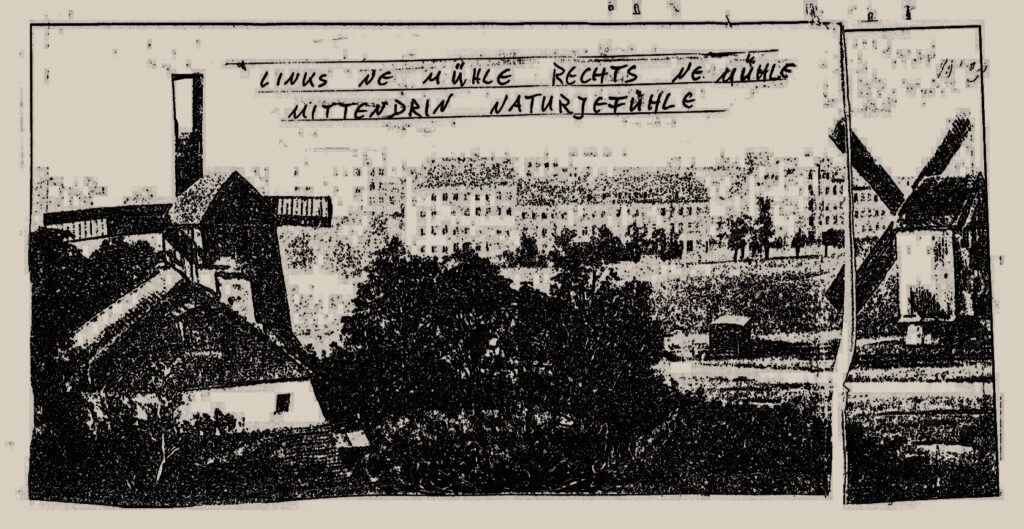 LINKS NE MÜHLE RECHTS NE MÜHLE
MITTENDRIN NATURJEFÜHLE